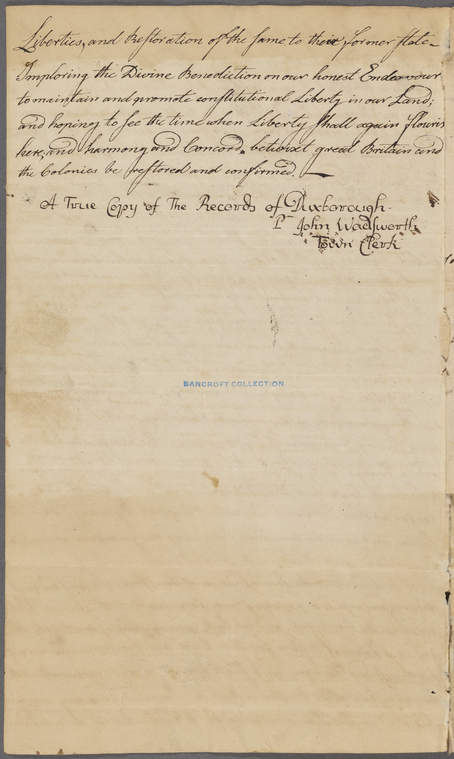 Liberties, and Restoration of the same to their former state—
Imploring the Divine Benediction on our honest Endeavour
to maintain and promote constitutional Liberty in our Land;
and hoping to see the time when Liberty shall again flouris
here, and harmony and Concord betwixt great Britain and
the Colonies be restored and confirmed.—
A True Copy of The Records of Duxborough
Pr John Wadsworth
Town Clerk
BANCROFT COLLECTION